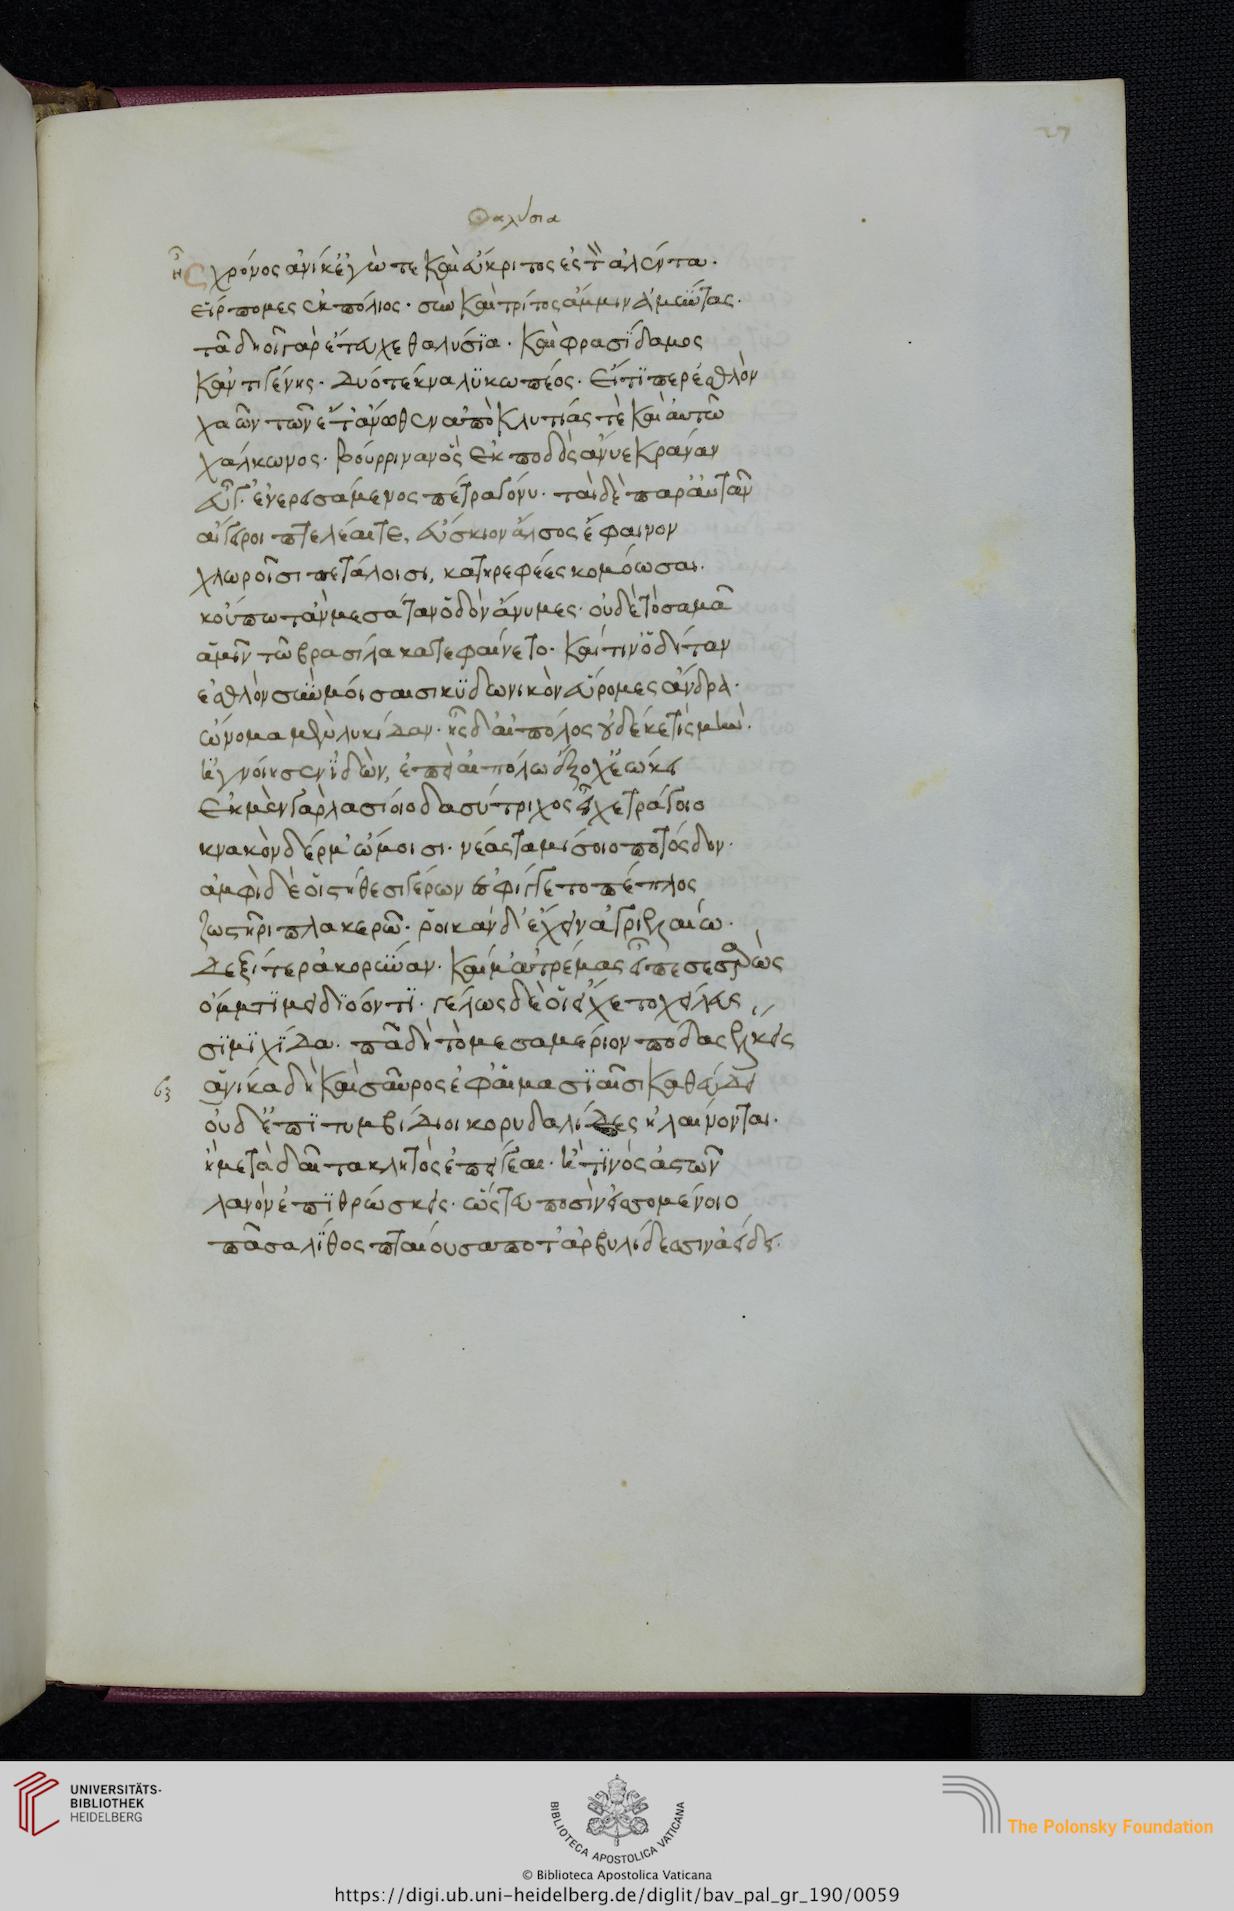 27
Θαλύσια
ἦς χρόνος ἁνίκ' ἐγώ τε καὶ εὔκριτος ἐς τὸν ἅλεντα.
εἵρπομες ἐκ πόλιος· σὺν καὶ τρίτος ἄμμιν ἀμύντας.
τᾶ δηοῖ γὰρ ἔτευχε θαλύσϊα. καὶ φρασίδαμος
κἀντιγένης. δύο τέκνα λϋκωπέος. εἴ τϊ περ ἐσθλὸν
χαῶν τῶν ἔτ' ἄνωθεν ἀπὸ κλυτίας τὲ καὶ αὐτῶ
χάλκωνος. βούρριναν ὃς ἐκ ποδὸς ἄνυε κράναν
εὖ γ' ἐνερεισάμενος πέτρα γόνυ. ταὶ δὲ παρ' αὐτὰν
αἴγεροι πτελέαι τε, εὔσκιον ἄλσος ἔφαινον
χλωροῖσι πετάλοισι, κατηρεφέες κομόωσαι.
κοὔπω τὰν μεσάταν ὁδὸν ἄνυμες. οὐδὲ τὸ σᾶμα
ἅμιν τῶ βρασίλα κατεφαίνετο. καί τιν' ὁδίταν
ἐσθλὸν σὺν μοίσαισι κϋδωνικὸν εὕρομες ἄνδρα.
ὤνομα μὲν λυκίδαν. ἦς δ' αἰπόλος οὐδέ κέ τίς μιν.
ἠγνοίησεν ἰδὼν, ἐπεὶ αἰπόλω ἔξοχ' ἐώκει
ἐκ μὲν γὰρ λασίοιο δασύτριχος εἶχε τράγοιο
κνακὸν δέρμ' ὤμοισι. νέας ταμίσοιο ποτόσδον.
ἀμφὶ δὲ οἱ στήθεσι γέρων ἐσφίγγετο πέπλος
ζωστῆρι πλακερῶ. ῥοικὰν δ' ἔχεν ἀγριελαίω.
δεξιτερᾶ κορύναν. καί μ' ἀτρέμας εἶπε σεσαρὼς
ὄμματϊ μειδϊόοντϊ. γέλως δὲ οἱ εἴχετο χείλευς
σϊμϊχίδα. πᾶ δὴ τὸ μεσαμέριον πόδας ἕλκεις
63 ἁνίκα δὴ καὶ σαῦρος ἐφ' αἱμασϊαῖσι καθεύδει
οὐδ' ἐπϊτυμβίδιοι κορυδαλίδες ἠλαίνονται.
ἢ μετὰ δαῖτα κλητὸς ἐπείγεαι. ἤ τϊνός ἀστῶν
λανὸν ἐπϊθρώσκεις. ὥς τευ ποσὶν ἐσσομένοιο
πᾶσα λίθος πταίουσα ποτ' ἀρβυλίδεσσιν ἀείδει.
UNIVERSITÄTS-
BIBLIOTHEK
HEIDELBERG
BIBLIOTECA APOSTOLICA VATICANA
The Polonsky Foundation
© Biblioteca Apostolica Vaticana
https://digi.ub.uni-heidelberg.de/diglit/bav_pal_gr_190/0059